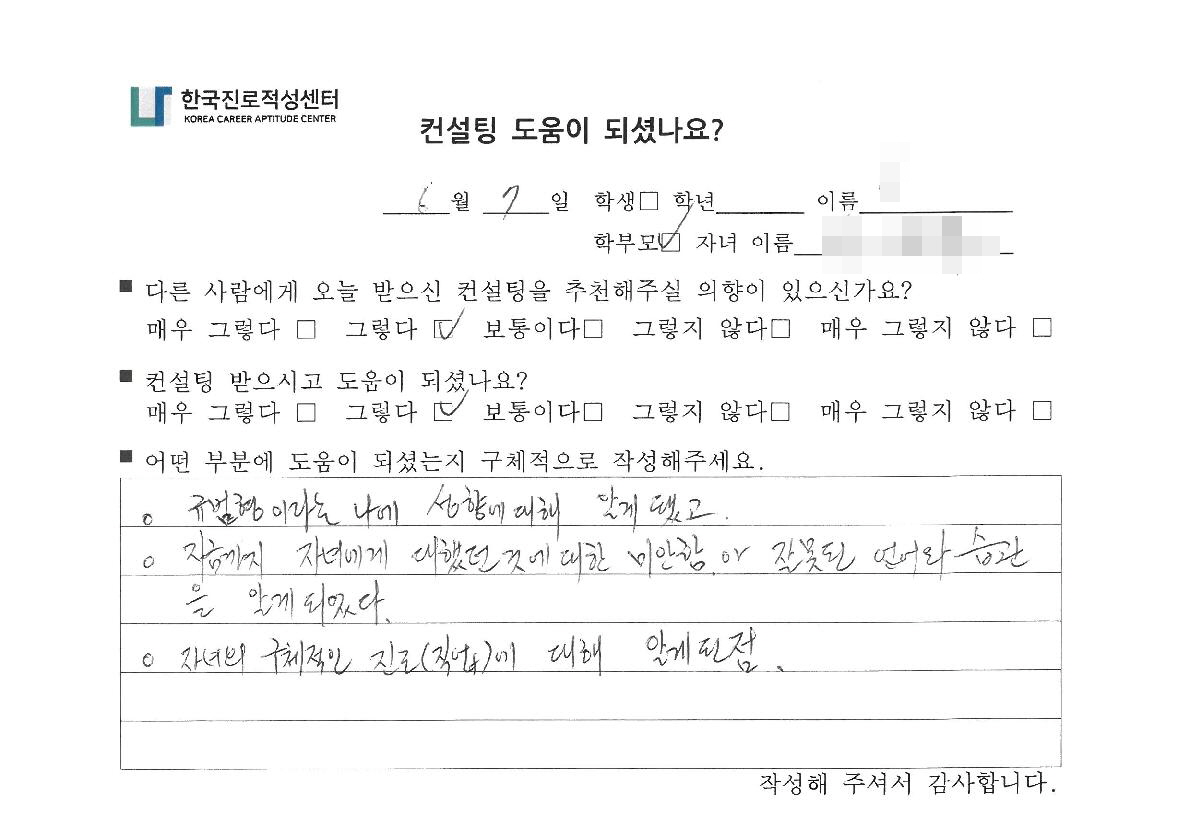 한국진로적성센터
KOREA CAREER APTITUDE CENTER
컨설팅 도움이 되셨나요?
6월 7일 학생□ 학년 이름
학부모☑ 자녀 이름
■ 다른 사람에게 오늘 받으신 컨설팅을 추천해주실 의향이 있으신가요?
매우 그렇다 □ 그렇다 ☑ 보통이다□ 그렇지 않다□ 매우 그렇지 않다 □
■ 컨설팅 받으시고 도움이 되셨나요?
매우 그렇다 □ 그렇다 ☑ 보통이다□ 그렇지 않다□ 매우 그렇지 않다 □
■ 어떤 부분에 도움이 되셨는지 구체적으로 작성해주세요.
○ 규범형이라는 나에 성향에대해 알게 됐고.
○ 지금까지 자녀에게 대했던것에대한 미안함. 잘못된 언어와 습관
을 알게되었다.
○ 자녀의 구체적인 진로(직업)에 대해 알게된점.
작성해 주셔서 감사합니다.